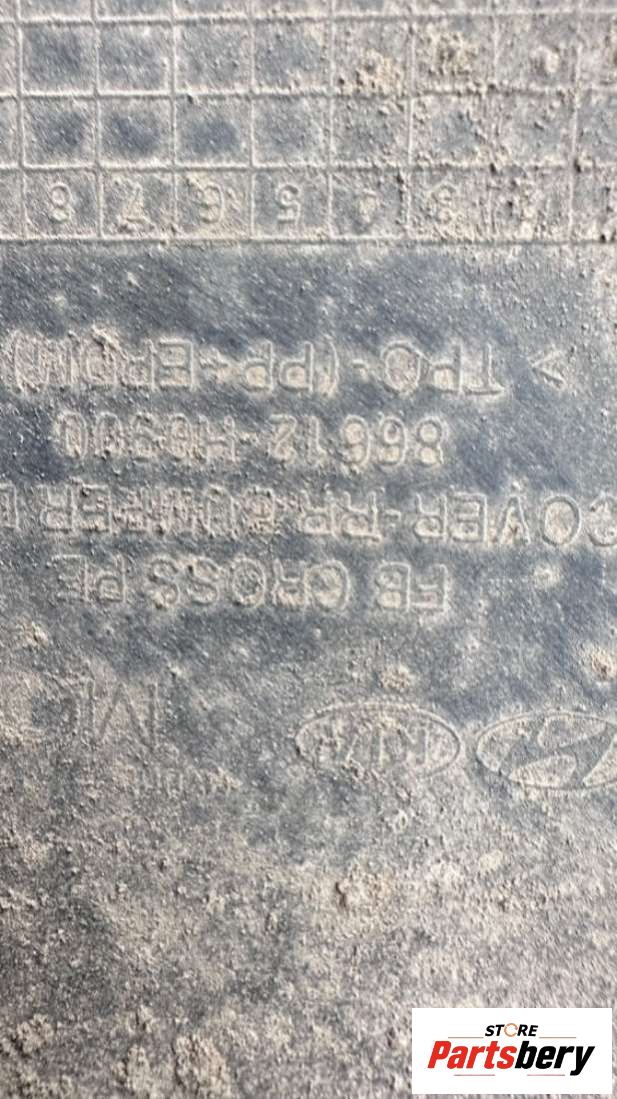 KIA
FB CROSS PE
COVER-RR BUMPER
> TPO-(PP+EPDM)
2 3 4 5 6 7 8
STORE
Partsbery